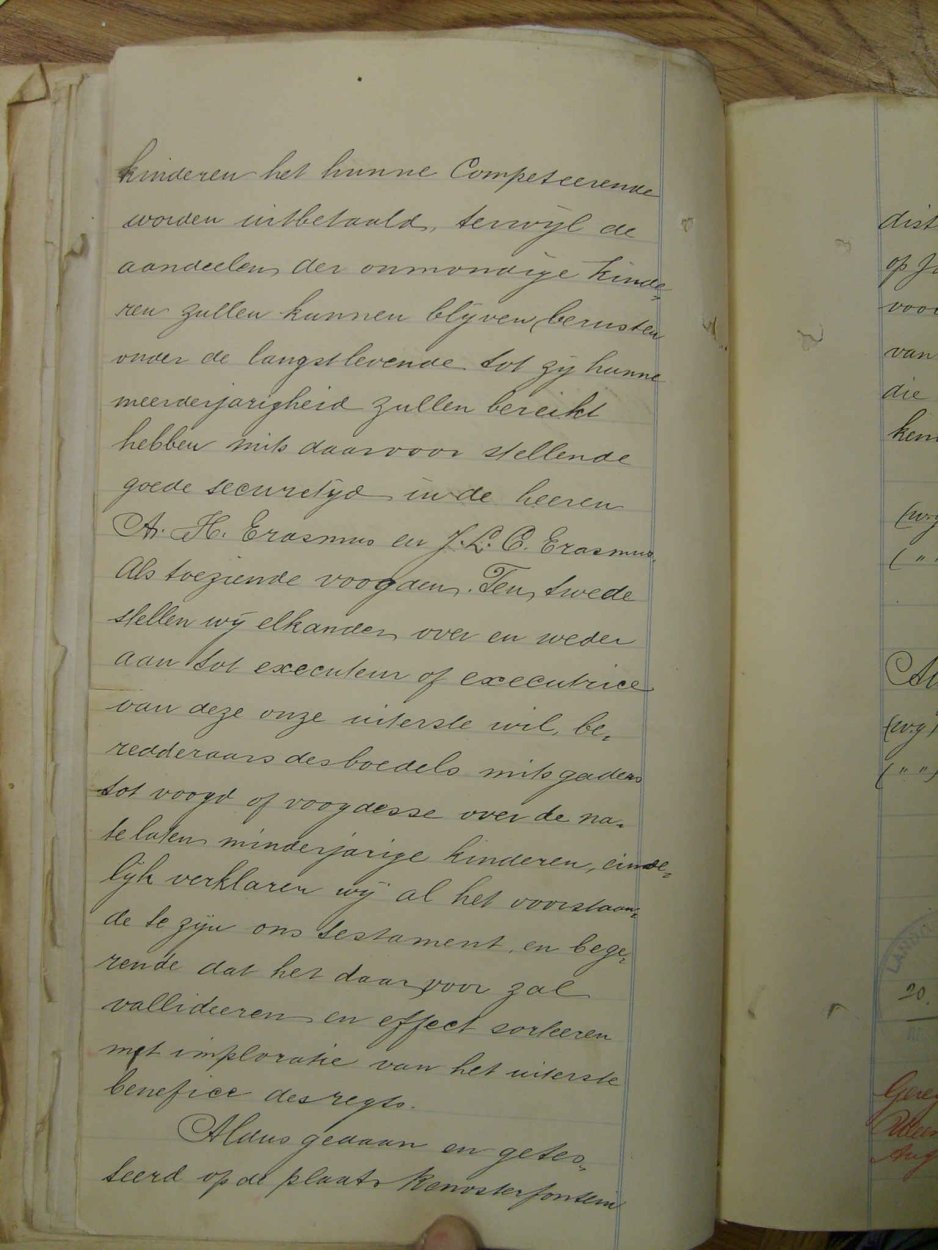 kinderen het hunne Competeerende
worden uitbetaald, terwijl de
aandeelen der onmondige kinde-
ren zullen kunnen blijven berusten
onder de langstlevende tot zij hunne
meerderjarigheid zullen bereikt
hebben mits daarvoor stellende
goede securetijd in de heeren
A. H. Erasmus en J. L. C. Erasmus.
Als toeziende voogden. Ten twede
stellen wij elkander over en weder
aan tot executeur of executrice
van deze onze uiterste wil, be-
redderaars des boedels mitsgaders
tot voogd of voogdesse over de na-
telaten minderjarige kinderen, einde-
lijk verklaren wij al het voorstaan-
de te zijn ons testament, en bege-
rende dat het daarvoor zal
vallideeren en effect sorteeren
met imploratie van het uiterste
benefice des regts.
Aldus gedaan en getes-
teerd op de plaats Renosterfontein
dist
op
voor
van
die
ken
(w.g
( " "
(w.g)
( " ")
LANDD
20.
Gere
Aug